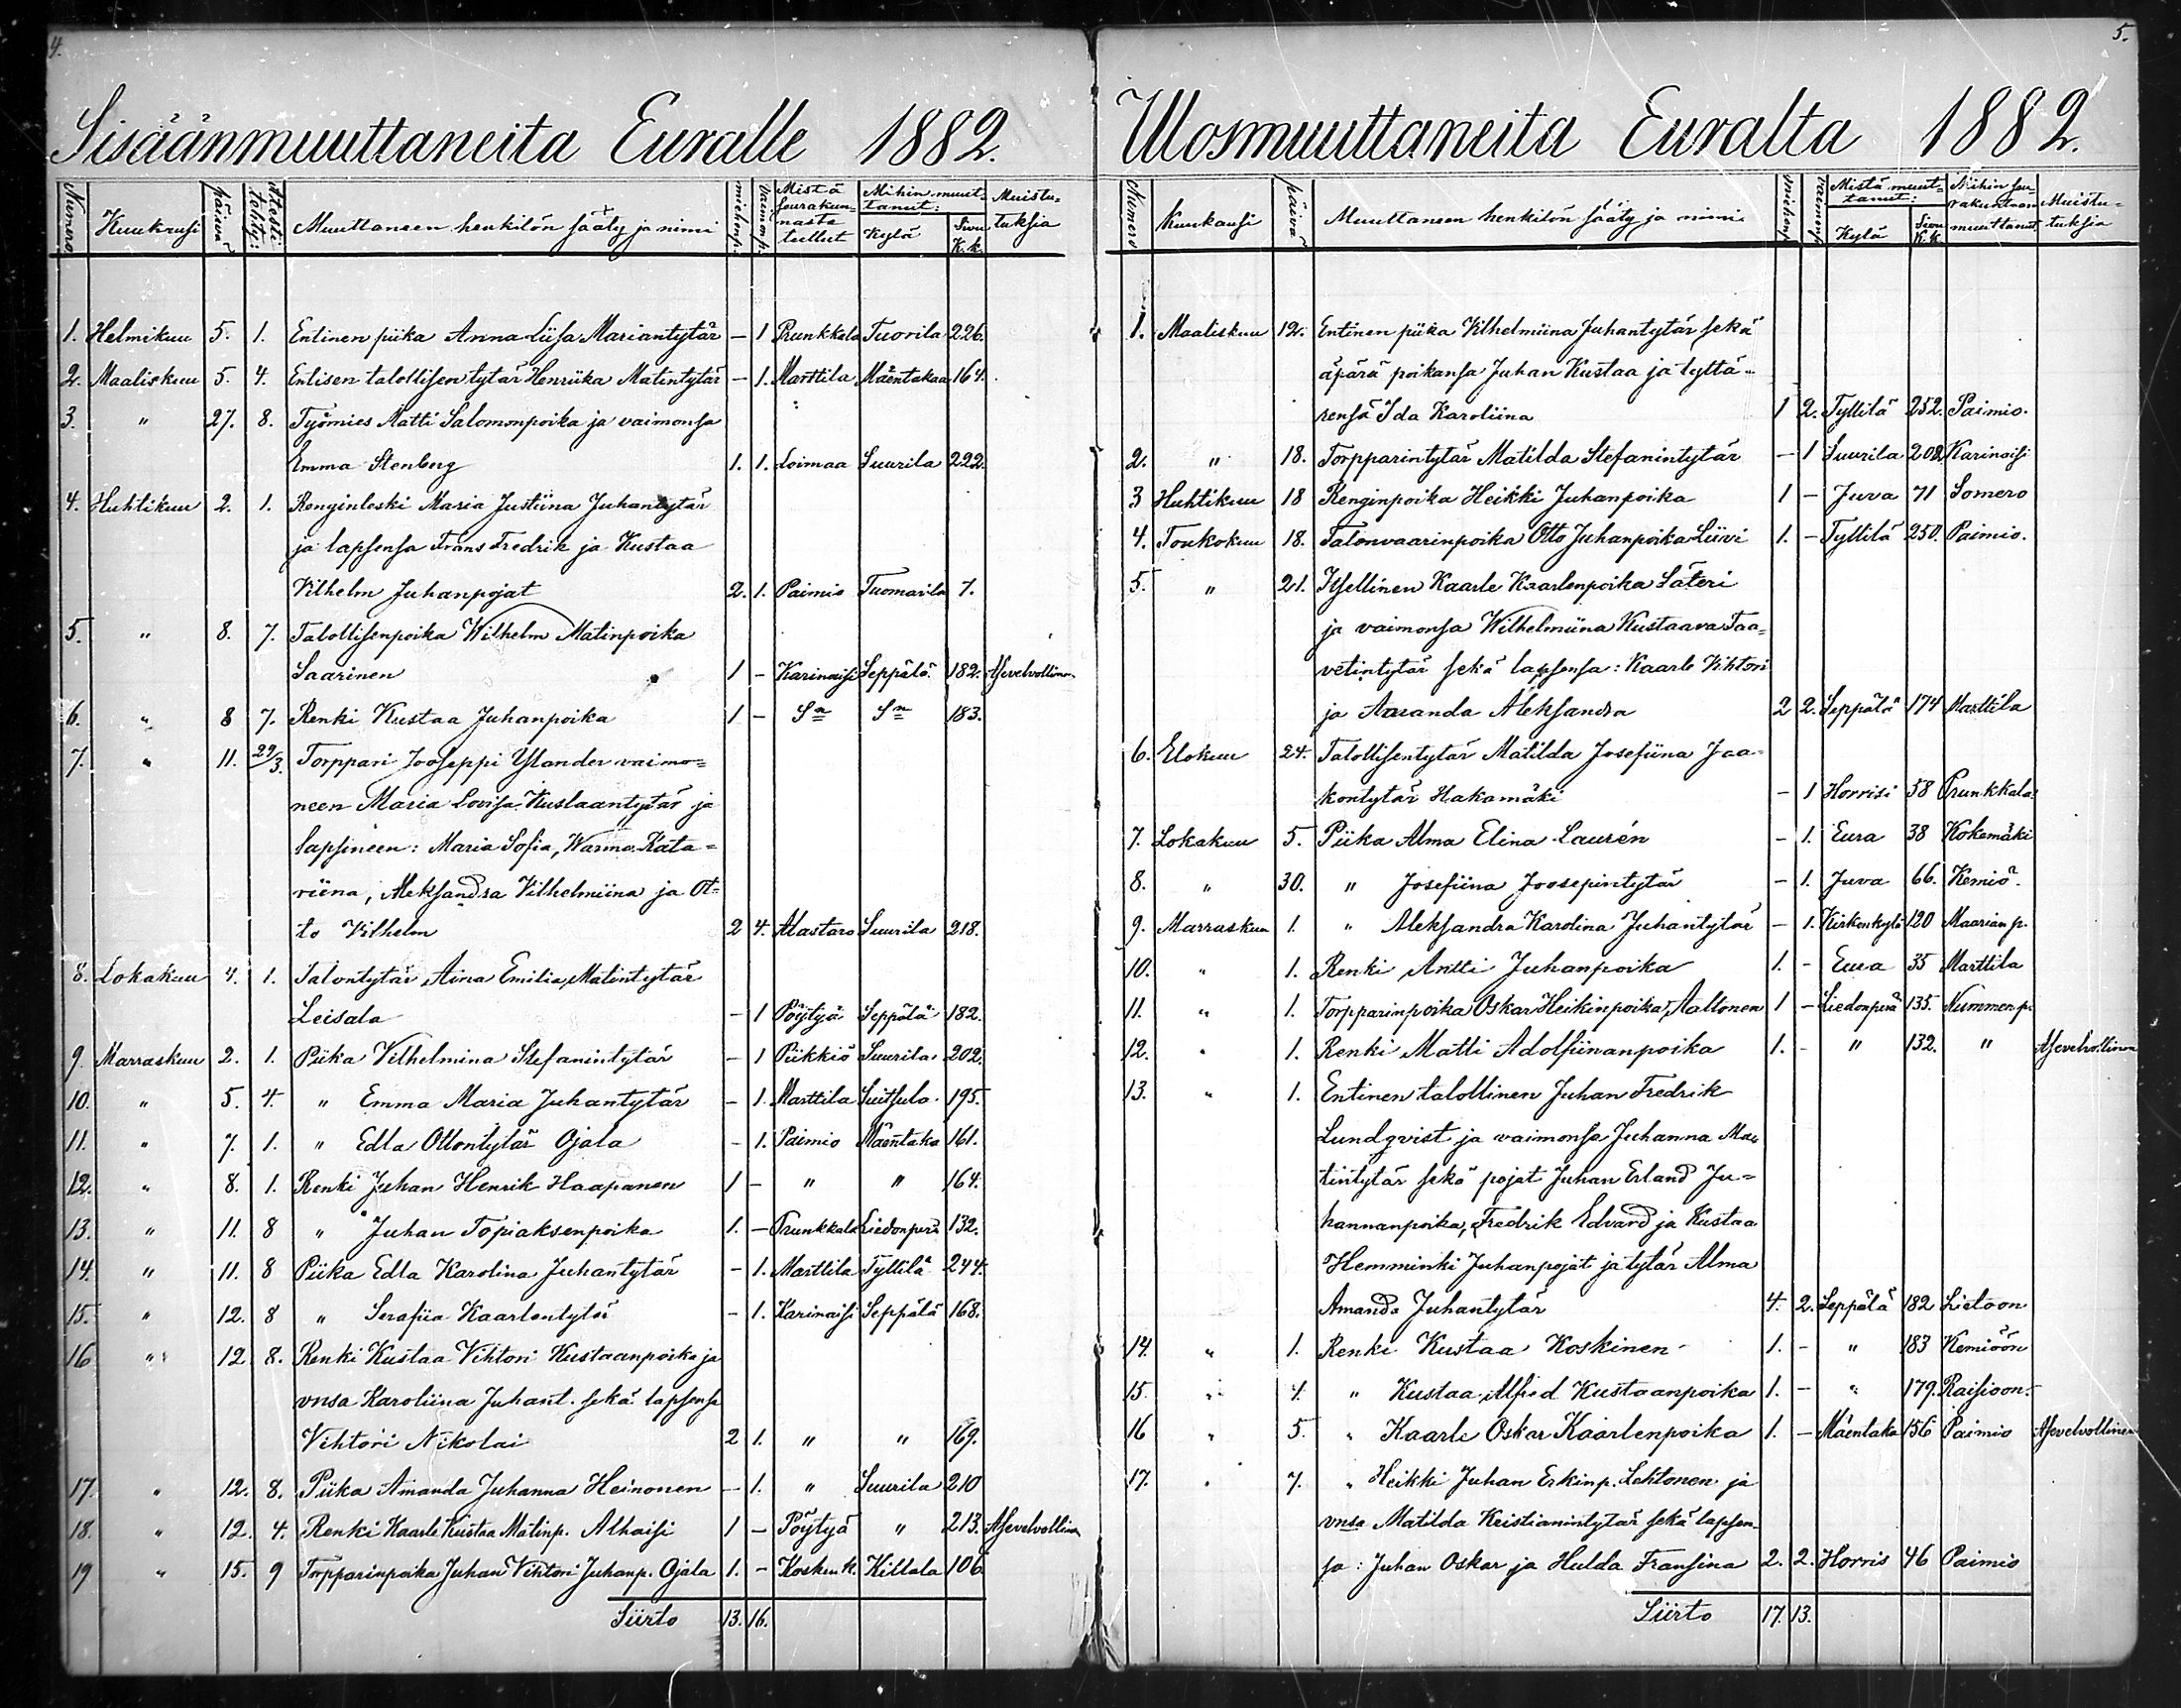 4.
Sisäänmuuttaneita Euralle 1882.
Numero Kuukausi päivä Attesti tehty: Muuttaneen henkilön sääty ja nimi miehenp. vaimonp. Mistä seurakunnasta tullut Mihin muuttanut: Kylä Sivu K.k. Muistutuksia
1. Helmikuu 5. 1. Entinen piika Anna Liisa Mariantytär – 1 Prunkkala Tuorila 226.
2. Maaliskuu 5. 4. Entisen talollisen tytär Henriika Matintytär – 1. Marttila Mäentakaa 164.
3. " 27. 8. Työmies Matti Salomonpoika ja vaimonsa
Emma Stenberg 1. 1. Loimaa Suurila 222.
4. Huhtikuu 2. 1. Renginleski Maria Justiina Juhantytär
ja lapsensa Frans Fredrik ja Kustaa
Vilhelm Juhanpojat 2. 1. Paimio Tuomarila 7.
5. " 8. 7. Talollisenpoika Wilhelm Matinpoika
Saarinen 1 – Karinaisi Seppälä 182. Asevelvollinen
6. " 8 7. Renki Kustaa Juhanpoika 1 – Sn Sn 183.
7. " 11. 29/3. Torppari Jooseppi Ylander vaimo=
neen Maria Lovisa Kustaantytär ja
lapsineen: Maria Sofia, Warma Kata=
riina, Aleksandra Vilhelmiina ja Ot=
to Vilhelm 2 4. Alastaro Suurila 218.
8. Lokakuu 4. 1. Talontytär Aina Emilia Matintytär
Leisala – 1 Pöytyä Seppälä 182.
9. Marraskuu 2. 1. Piika Vilhelmina Stefanintytär – 1 Piikkiö Suurila 202.
10. " 5. 4. " Emma Maria Juhantytär – 1. Marttila Suitsula 195.
11. " 7. 1. " Edla Ottontytär Ojala – 1. Paimio Mäentaka 161.
12. " 8. 1. Renki Juhan Henrik Haapanen 1 – " " 164.
13. " 11. 8 " Juhan Topiaksenpoika 1. – Prunkkala Liedonperä 132.
14. " 11. 8 Piika Edla Karolina Juhantytär – 1. Marttila Tyllilä 244.
15. " 12. 8 " Serafiia Kaarlontytär – 1. Karinaisi Seppälä 168.
16 " 12 8. Renki Kustaa Vihtori Kustaanpoika ja
vnsa Karoliina Juhant. sekä lapsensa
Vihtori Nikolai 2 1. " " 169.
17. " 12. 8. Piika Amanda Juhanna Heinonen – 1. " Suurila 210
18. " 12. 4. Renki Kaarle Kustaa Matinp. Alhaisi 1 – Pöytyä " 213. Asevelvollinen
19 " 15. 9 Torpparinpoika Juhan Vihtori Juhanp. Ojala 1. – Kosken k. Killala 106
Siirto 13. 16.
5.
Ulosmuuttaneita Euralta 1882.
Numero Kuukausi päivä Muuttaneen henkilön sääty ja nimi miehenp. vaimonp. Mistä muuttanut: Kylä Sivu K.k. Mihin seurakuntaan muuttanut Muistutuksia
1. Maaliskuu 12. Entinen piika Vilhelmiina Juhantytär sekä
äpärä poikansa Juhan Kustaa ja tyttä=
rensä Ida Karoliina 1 2. Tyllilä 252. Paimio.
2. " 18. Torpparintytär Matilda Stefanintytär – 1 Suurila 202. Karinaisi
3 Huhtikuu 18 Renginpoika Heikki Juhanpoika 1 – Juva 71 Somero
4. Toukokuu 18. Talonvaarinpoika Otto Juhanpoika Liivi 1. – Tyllilä 250. Paimio.
5. " 21. Itsellinen Kaarle Kaarlenpoika Säteri
ja vaimonsa Wilhelmiina Kustaava Taa=
vetintytär sekä lapsensa: Kaarle Vihtori
ja Amanda Aleksandra 2 2. Seppälä 174 Marttila
6. Elokuu 24. Talollisentytär Matilda Josefiina Jaa=
kontytär Hakamäki – 1 Horrisi 58 Prunkkala
7. Lokakuu 5. Piika Alma Elina Laurén – 1. Eura 38 Kokemäki
8. " 30. " Josefiina Joosepintytär – 1. Juva 66. Kemiö.
9. Marraskuu 1. " Aleksandra Karolina Juhantytär – 1. Kirkonkylä 120 Maarian p.
10. " 1. Renki Antti Juhanpoika 1. – Eura 35 Marttila
11. " 1. Torpparinpoika Oskar Heikinpoika Aaltonen 1 – Liedonperä 135. Nummen p.
12. " 1. Renki Matti Adolfiinanpoika 1. – " 132. " Asevelvollinen
13. " 1. Entinen talollinen Juhan Fredrik
Lundqvist ja vaimonsa Juhanna Ma=
tintytär sekä pojat Juhan Erland Ju=
hannanpoika, Fredrik Edvard ja Kustaa
Hemminki Juhanpojat ja tytär Alma
Amanda Juhantytär 4. 2. Seppälä 182 Lietoon
14. " 1. Renki Kustaa Koskinen 1. – " 183 Kemiöön
15. " 4. " Kustaa Alfred Kustaanpoika 1. – " 179. Raisioon.
16 " 5. " Kaarle Oskar Kaarlenpoika 1. – Mäentaka 156 Paimio Asevelvollinen
17. " 7. " Heikki Juhan Erkinp. Lehtonen ja
vnsa Matilda Kristianintytär sekä lapsen=
sa: Juhan Oskar ja Hulda Fransina 2. 2. Horris 46 Paimio
Siirto 17. 13.